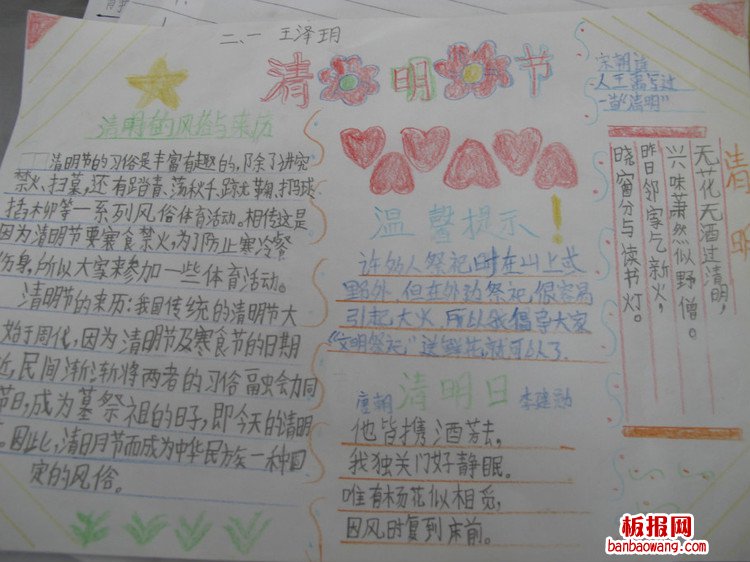 二、一 王泽玥
清明节
清明节的风俗与来历
清明节的习俗是丰富有趣的,除了讲究
禁火、扫墓,还有踏青、荡秋千、蹴鞠、打马球
插柳等一系列风俗体育活动。相传这是
因为清明节要寒食禁火,为了防止寒冷餐
伤身,所以大家来参加一些体育活动。
清明节的来历:我国传统的清明节大
始于周代,因为清明节及寒食节的日期
近,民间渐渐将两者的习俗融会力同
节日,成为墓祭祖的日子,即今天的清明
。因此,清明节而成为中华民族一种固
定的风俗。
温馨提示!
许多人祭祀时在山上或
野外,但在外边祭祀,很容易
引起大火,所以我倡导大家
“文明祭祀”送鲜花就可以了.
清明日
唐朝 李建勋
他皆携酒芳去,
我独关门好静眠。
唯有杨花似相觅,
因风时复到床前。
宋朝诗
人王禹写过
一首“清明”
清明
无花无酒过清明,
兴味萧然似野僧。
昨日邻家乞新火,
晓窗分与读书灯。
板报网
banbaowang.com